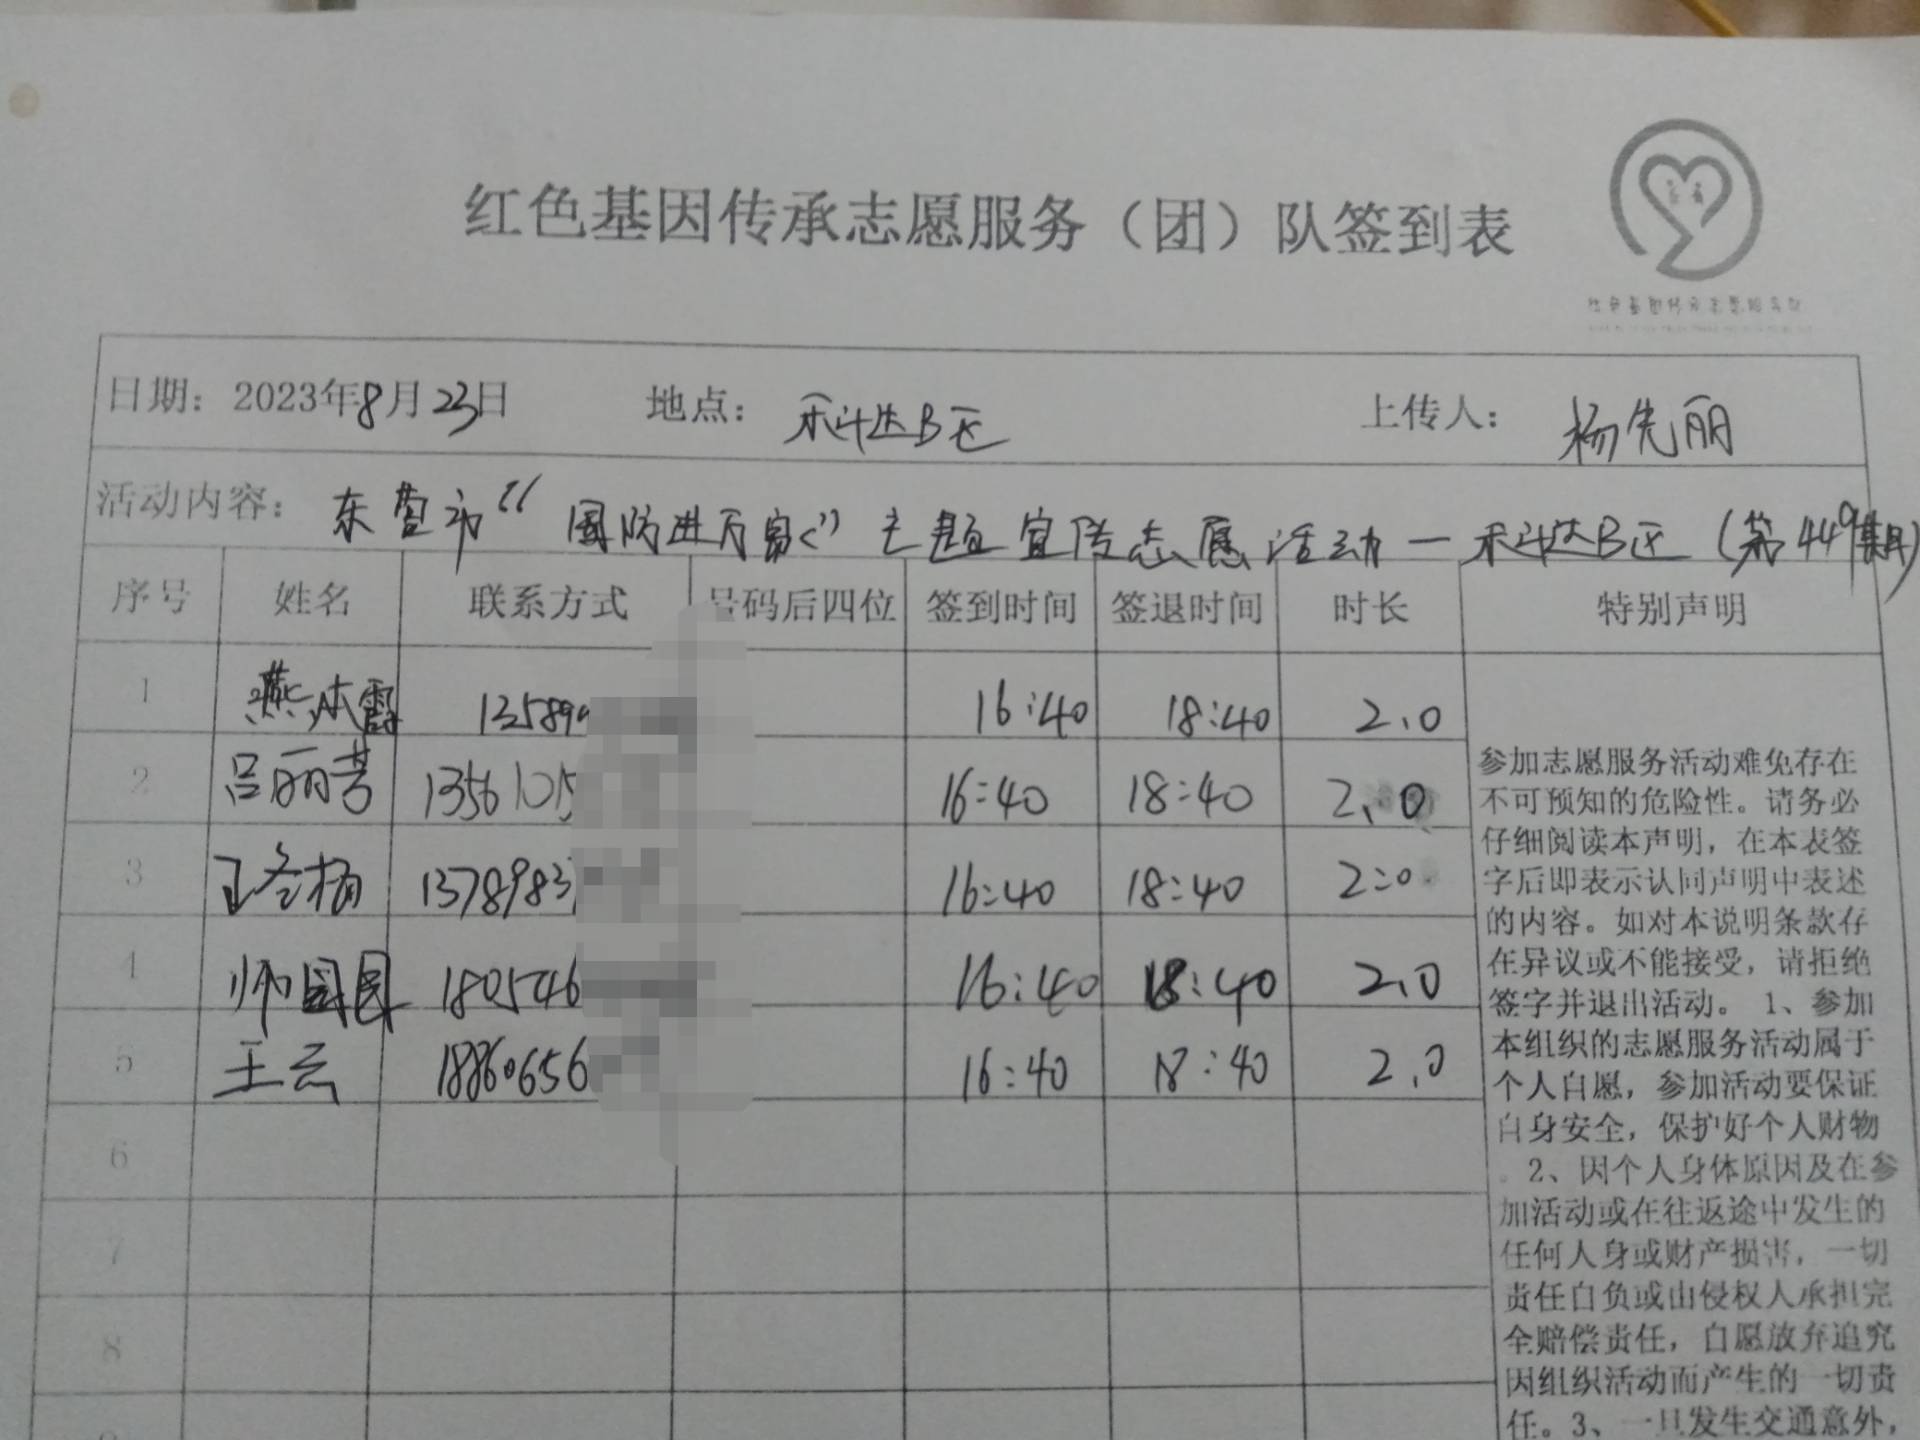 红色基因传承志愿服务（团）队签到表
日期：2023年8月23日 地点：禾斗达B区 上传人：杨先丽
活动内容：东营市“国防进万家”主题宣传志愿活动—禾斗达B区（第449期）
序号 姓名 联系方式 号码后四位 签到时间 签退时间 时长 特别声明
1 燕冰霞 135899 16:40 18:40 2.0
2 吕丽芳 1356105 16:40 18:40 2.0
3 王冬梅 1378983 16:40 18:40 2:0
4 帅国民 180546 16:40 18:40 2.0
5 王云 18860656 16:40 18:40 2.0
6
7
8
参加志愿服务活动难免存在
不可预知的危险性。请务必
仔细阅读本声明，在本表签
字后即表示认同声明中表述
的内容。如对本说明条款存
在异议或不能接受，请拒绝
签字并退出活动。 1、参加
本组织的志愿服务活动属于
个人自愿，参加活动要保证
自身安全，保护好个人财物
。2、因个人身体原因及在参
加活动或在往返途中发生的
任何人身或财产损害，一切
责任自负或由侵权人承担完
全赔偿责任，自愿放弃追究
因组织活动而产生的一切责
任。3、一旦发生交通意外，